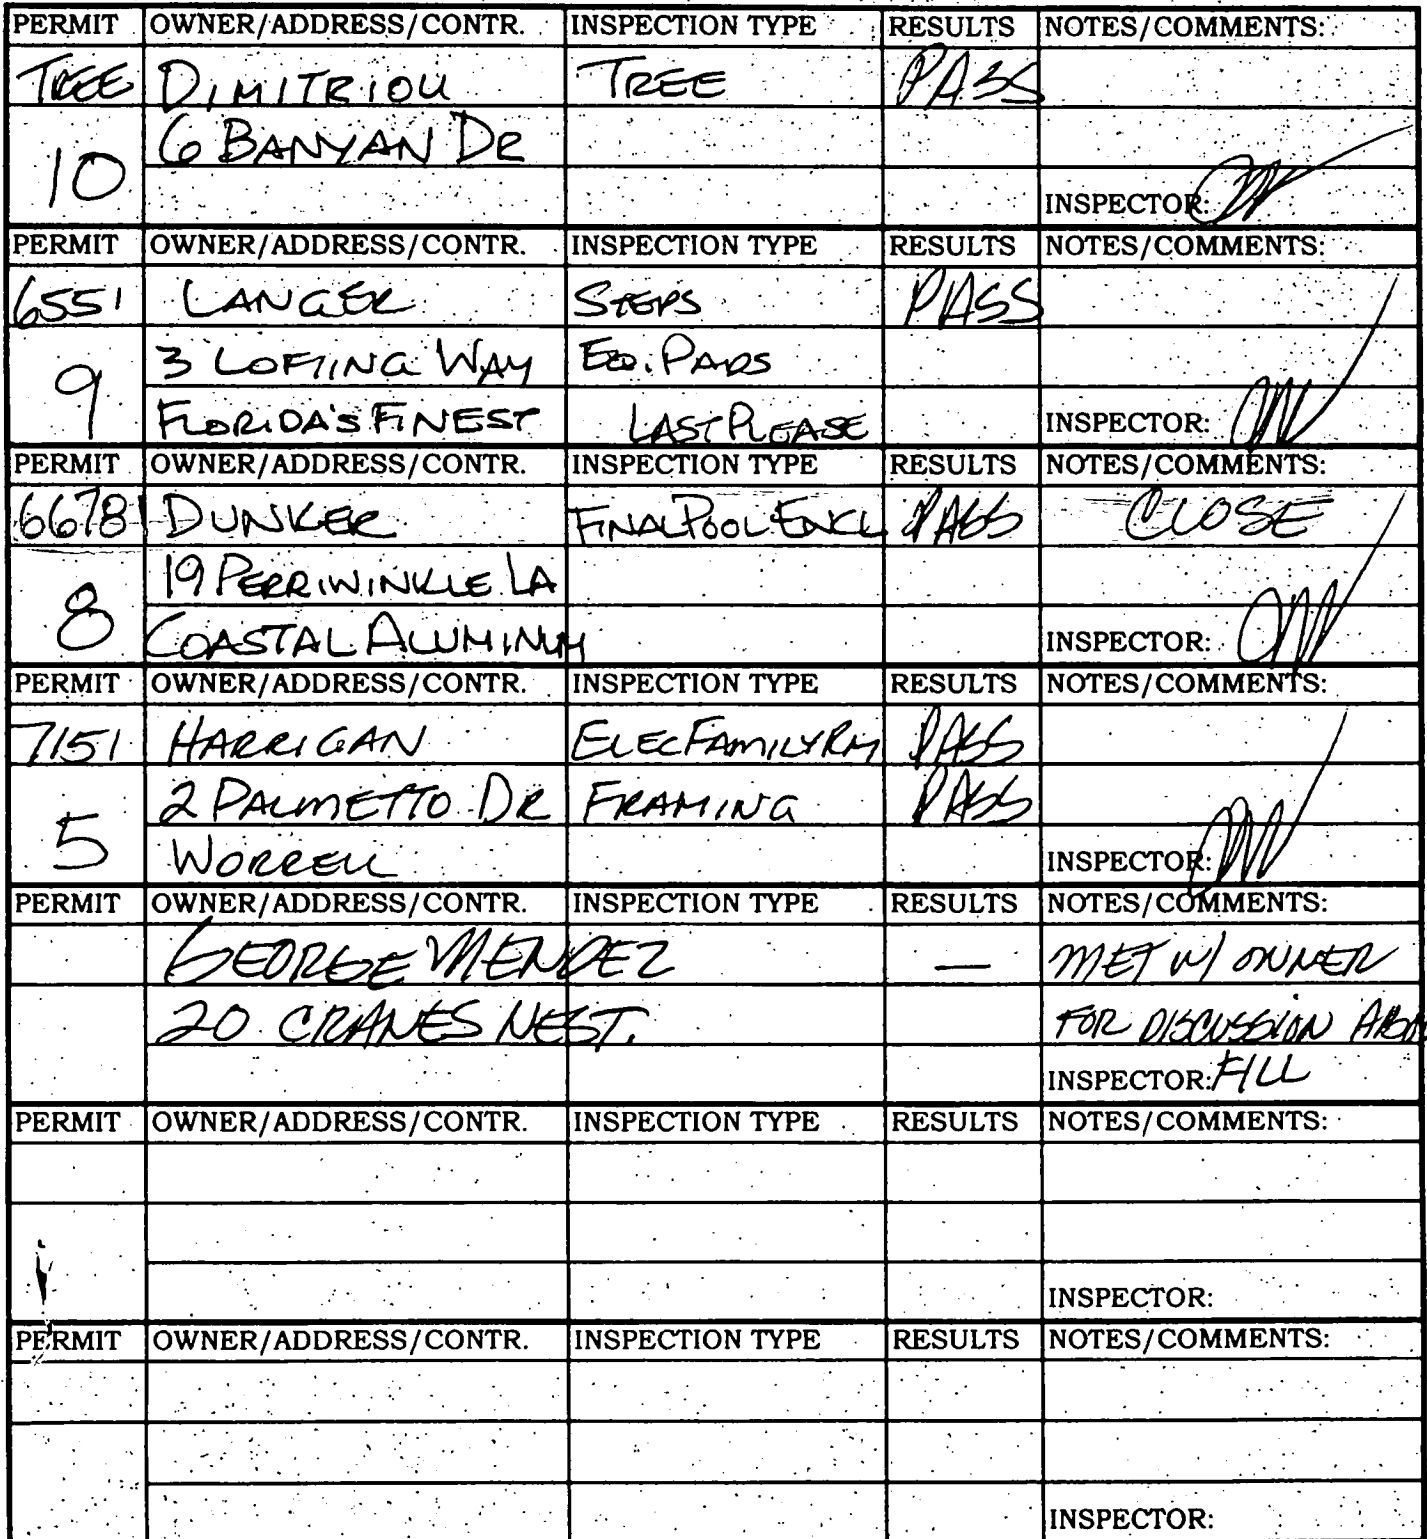 PERMIT OWNER/ADDRESS/CONTR. INSPECTION TYPE RESULTS NOTES/COMMENTS:
TREE DIMITRIOU TREE PASS
6 BANYAN DR
10
INSPECTOR:
PERMIT OWNER/ADDRESS/CONTR. INSPECTION TYPE RESULTS NOTES/COMMENTS:
6551 LANGER STEPS PASS
9 3 LOFTING WAY EQ. PADS
FLORIDA'S FINEST LAST PLEASE INSPECTOR:
PERMIT OWNER/ADDRESS/CONTR. INSPECTION TYPE RESULTS NOTES/COMMENTS:
6678 DUNKER FINAL POOL ENCL PASS CLOSE
8 19 PERRIWINKLE LA
COASTAL ALUMINUM INSPECTOR:
PERMIT OWNER/ADDRESS/CONTR. INSPECTION TYPE RESULTS NOTES/COMMENTS:
7151 HARRIGAN ELEC FAMILY RM PASS
5 2 PALMETTO DR FRAMING PASS
WORRELL INSPECTOR:
PERMIT OWNER/ADDRESS/CONTR. INSPECTION TYPE RESULTS NOTES/COMMENTS:
GEORGE MENDEZ — MET W/ OWNER
20 CRANES NEST. FOR DISCUSSION ABOU
INSPECTOR: FILL
PERMIT OWNER/ADDRESS/CONTR. INSPECTION TYPE RESULTS NOTES/COMMENTS:
INSPECTOR:
PERMIT OWNER/ADDRESS/CONTR. INSPECTION TYPE RESULTS NOTES/COMMENTS:
INSPECTOR: